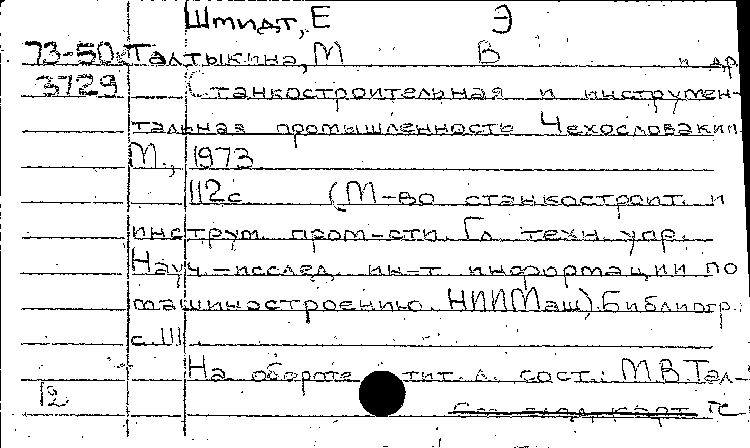 Шмидт, Е Э
73-50 Талтыкина, М В и др
3729 Станкостроительная и инструмен-
тальная промышленность Чехословакии
М., 1973
112с (М-во станкостроит. и
инструм. пром-сти. Гл техн упр.
Науч-исслед. ин-т информации по
машиностроению. НИИМаш). Библиогр.:
с. III
На обороте тит. л. сост.: М.В.Тал-
12
См след карт